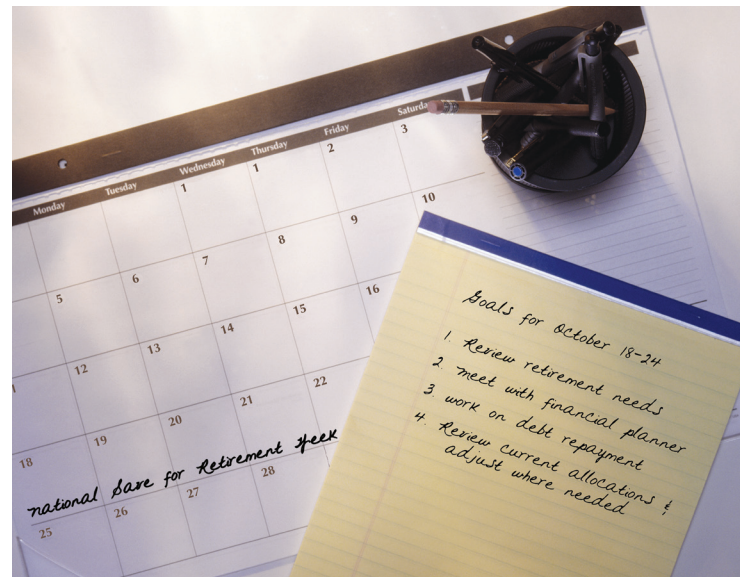 Monday Tuesday Wednesday Thursday Friday Saturda
1 1 2 3
5 6 7 8 9 10
12 13 14 15 16
18 19 20 21 22
national Save for Retirement Week
25 26 27 28
Goals for October 18-24
1. Review retirement needs
2. meet with financial planner
3. work on debt repayment
4. Review current allocations &
adjust where needed